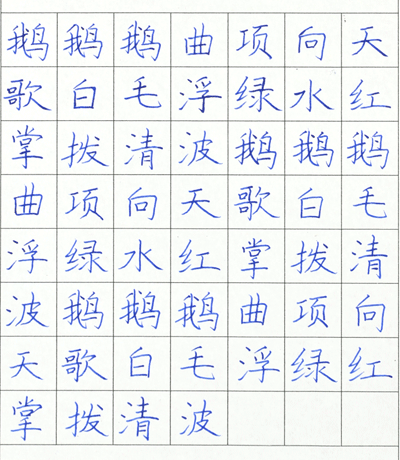 鹅鹅鹅曲项向天
歌白毛浮绿水红
掌拨清波鹅鹅鹅
曲项向天歌白毛
浮绿水红掌拨清
波鹅鹅鹅曲项向
天歌白毛浮绿红
掌拨清波